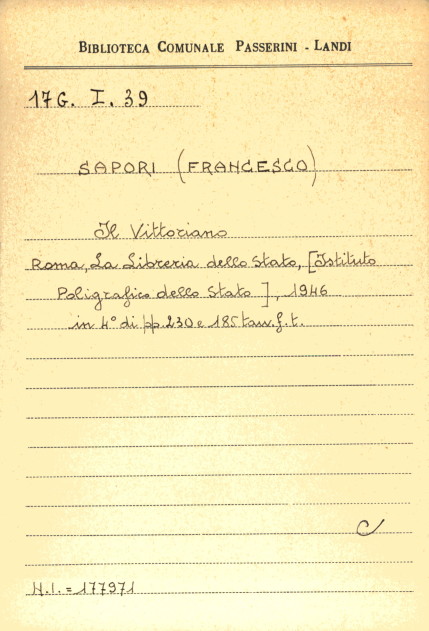 BIBLIOTECA COMUNALE PASSERINI - LANDI
17G. I. 39
SAPORI (FRANCESCO)
Il Vittoriano
Roma, La Libreria dello Stato, [Istituto
Poligrafico dello Stato], 1946
in 4° di pp. 230 e 185 tav. f. t.
C
N.I. = 177971